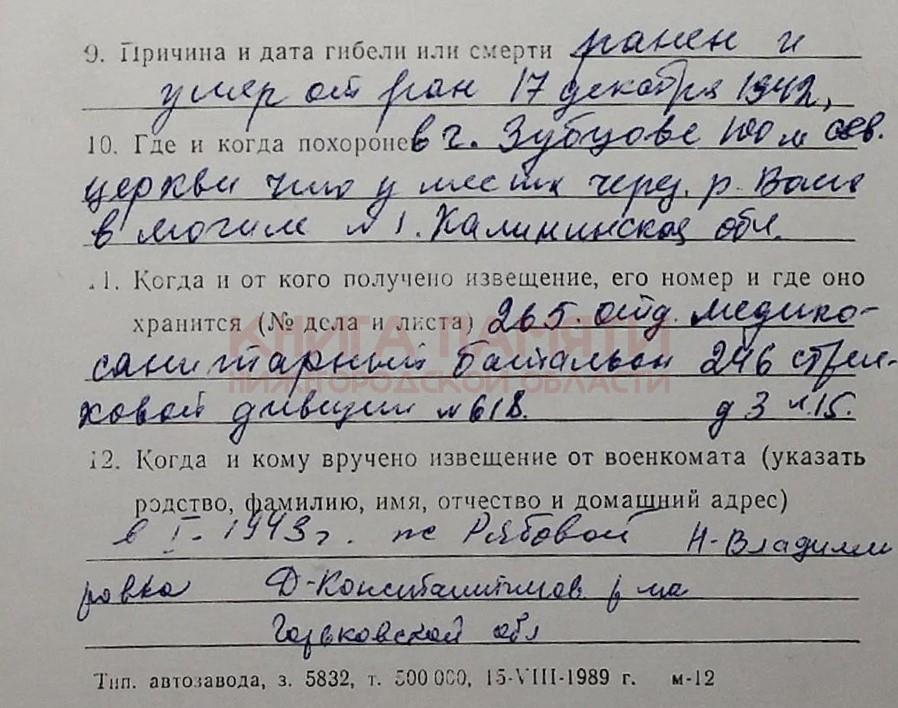 9. Причина и дата гибели или смерти ранен и
умер от ран 17 декабря 1942,
10. Где и когда похоронен в г. Зубцове 100 м сев.
церкви что у моста через р.
в могиле №1. Калининская обл.
11. Когда и от кого получено извещение, его номер и где оно
хранится (№ дела и листа) 265 отд. медико-
КНИГА ПАМЯТИ
санитарный батальон 246 стрел-
НИЖЕГОРОДСКОЙ ОБЛАСТИ
ковой дивизии №618. д 3 л.15.
12. Когда и кому вручено извещение от военкомата (указать
родство, фамилию, имя, отчество и домашний адрес)
в I-1943г. же Рябовой Н-Владими
ровка Д-Константинов р на
Горьковской обл
Тип. автозавода, з. 5832, т. 500 000, 15-VIII-1989 г. м-12